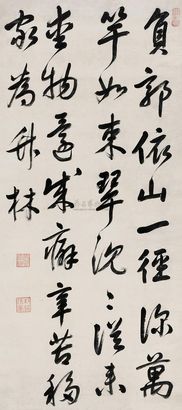 負郭依山一徑深萬
竿如束翠沉沉從来
愛物多成癖辛苦移
家為竹林